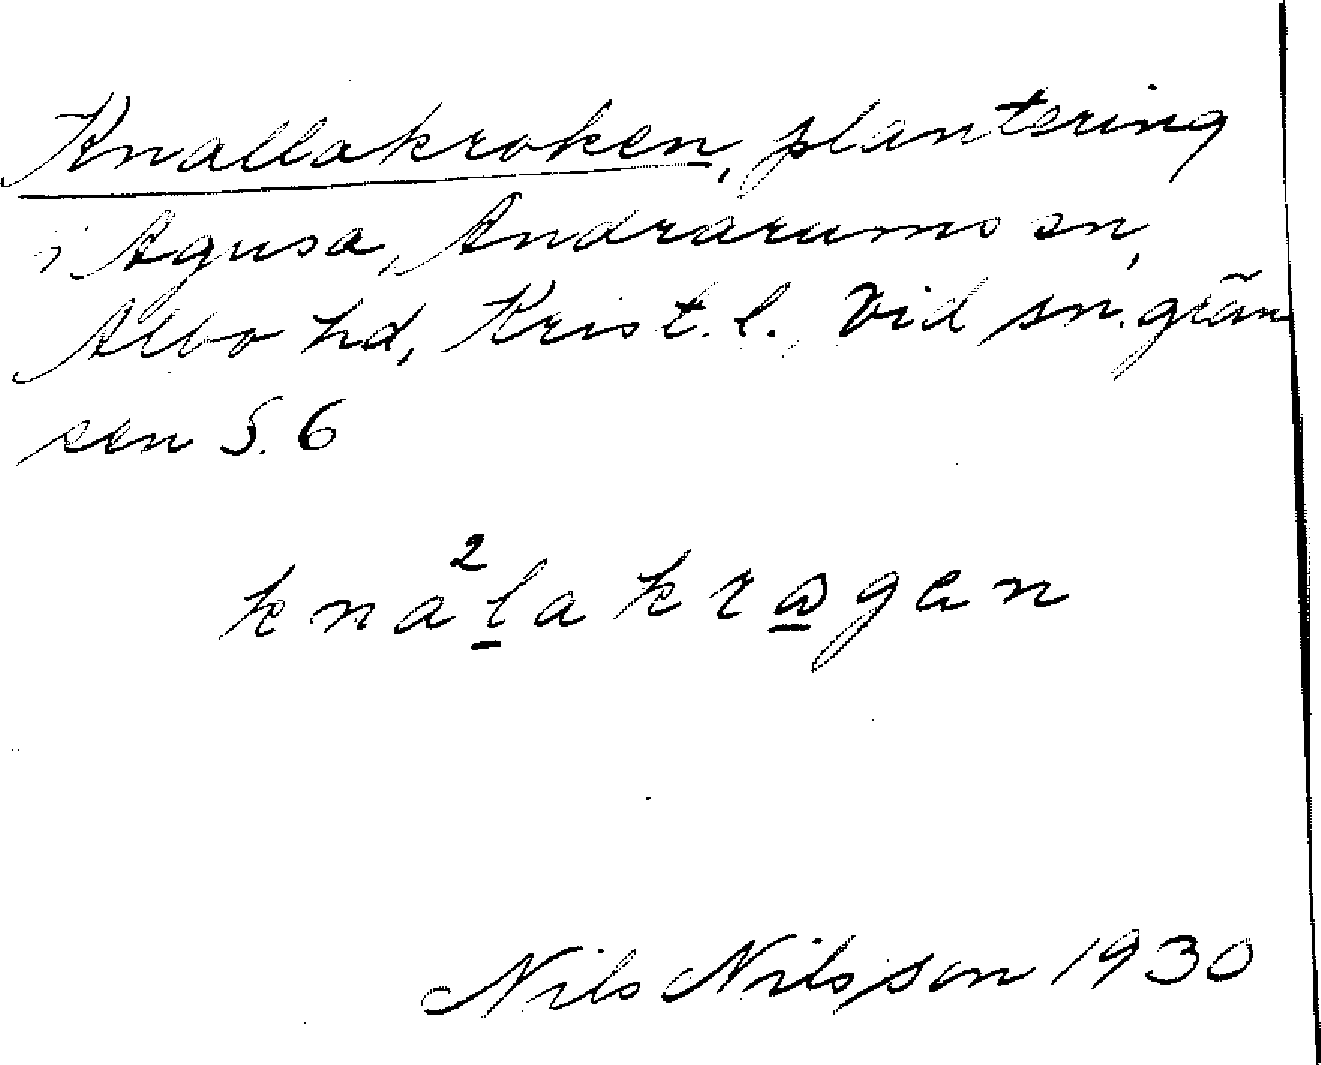 Knallakroken, plantering
i Agusa, Andrarums sn,
Albo hd, Krist. l. Vid sn.grän
sen S. 6
kna²lakrågen
Nils Nilsson 1930